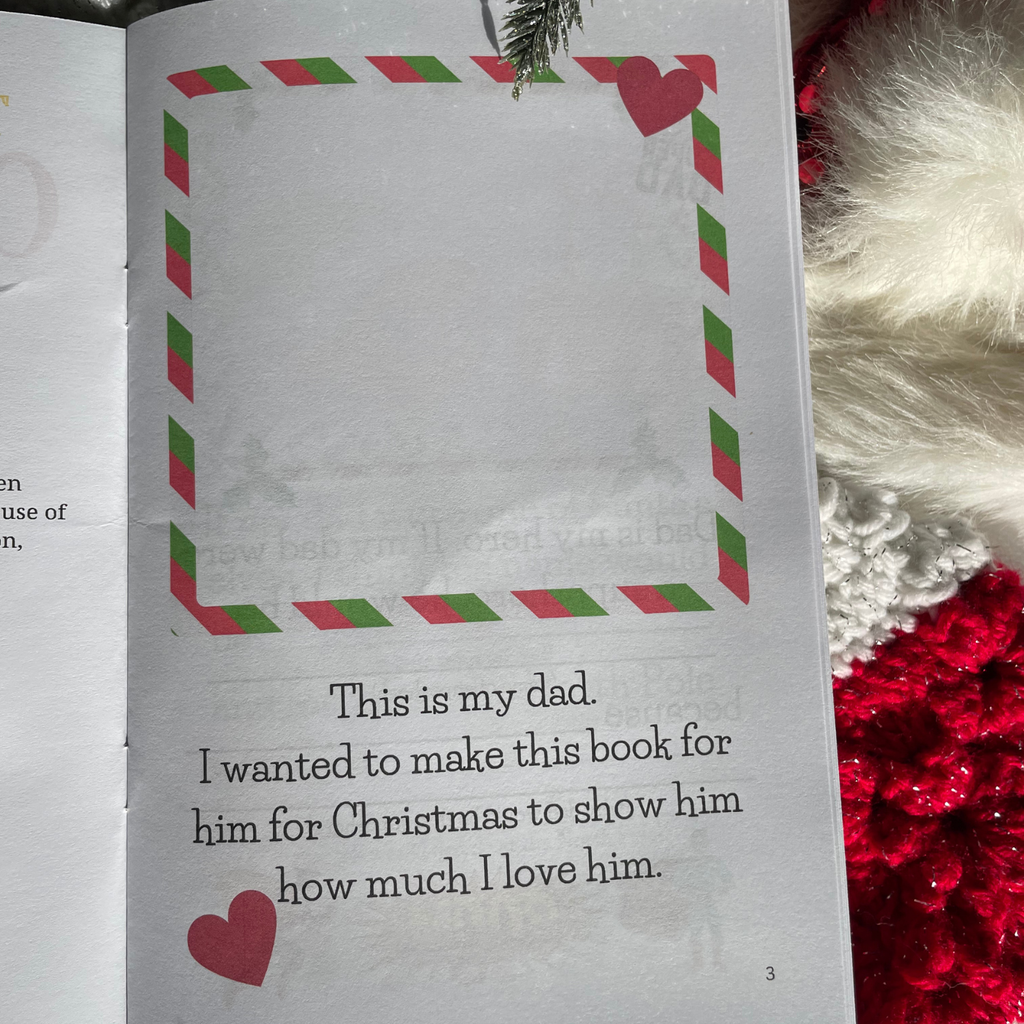 en
use of
on,
This is my dad.
I wanted to make this book for
him for Christmas to show him
how much I love him.
3